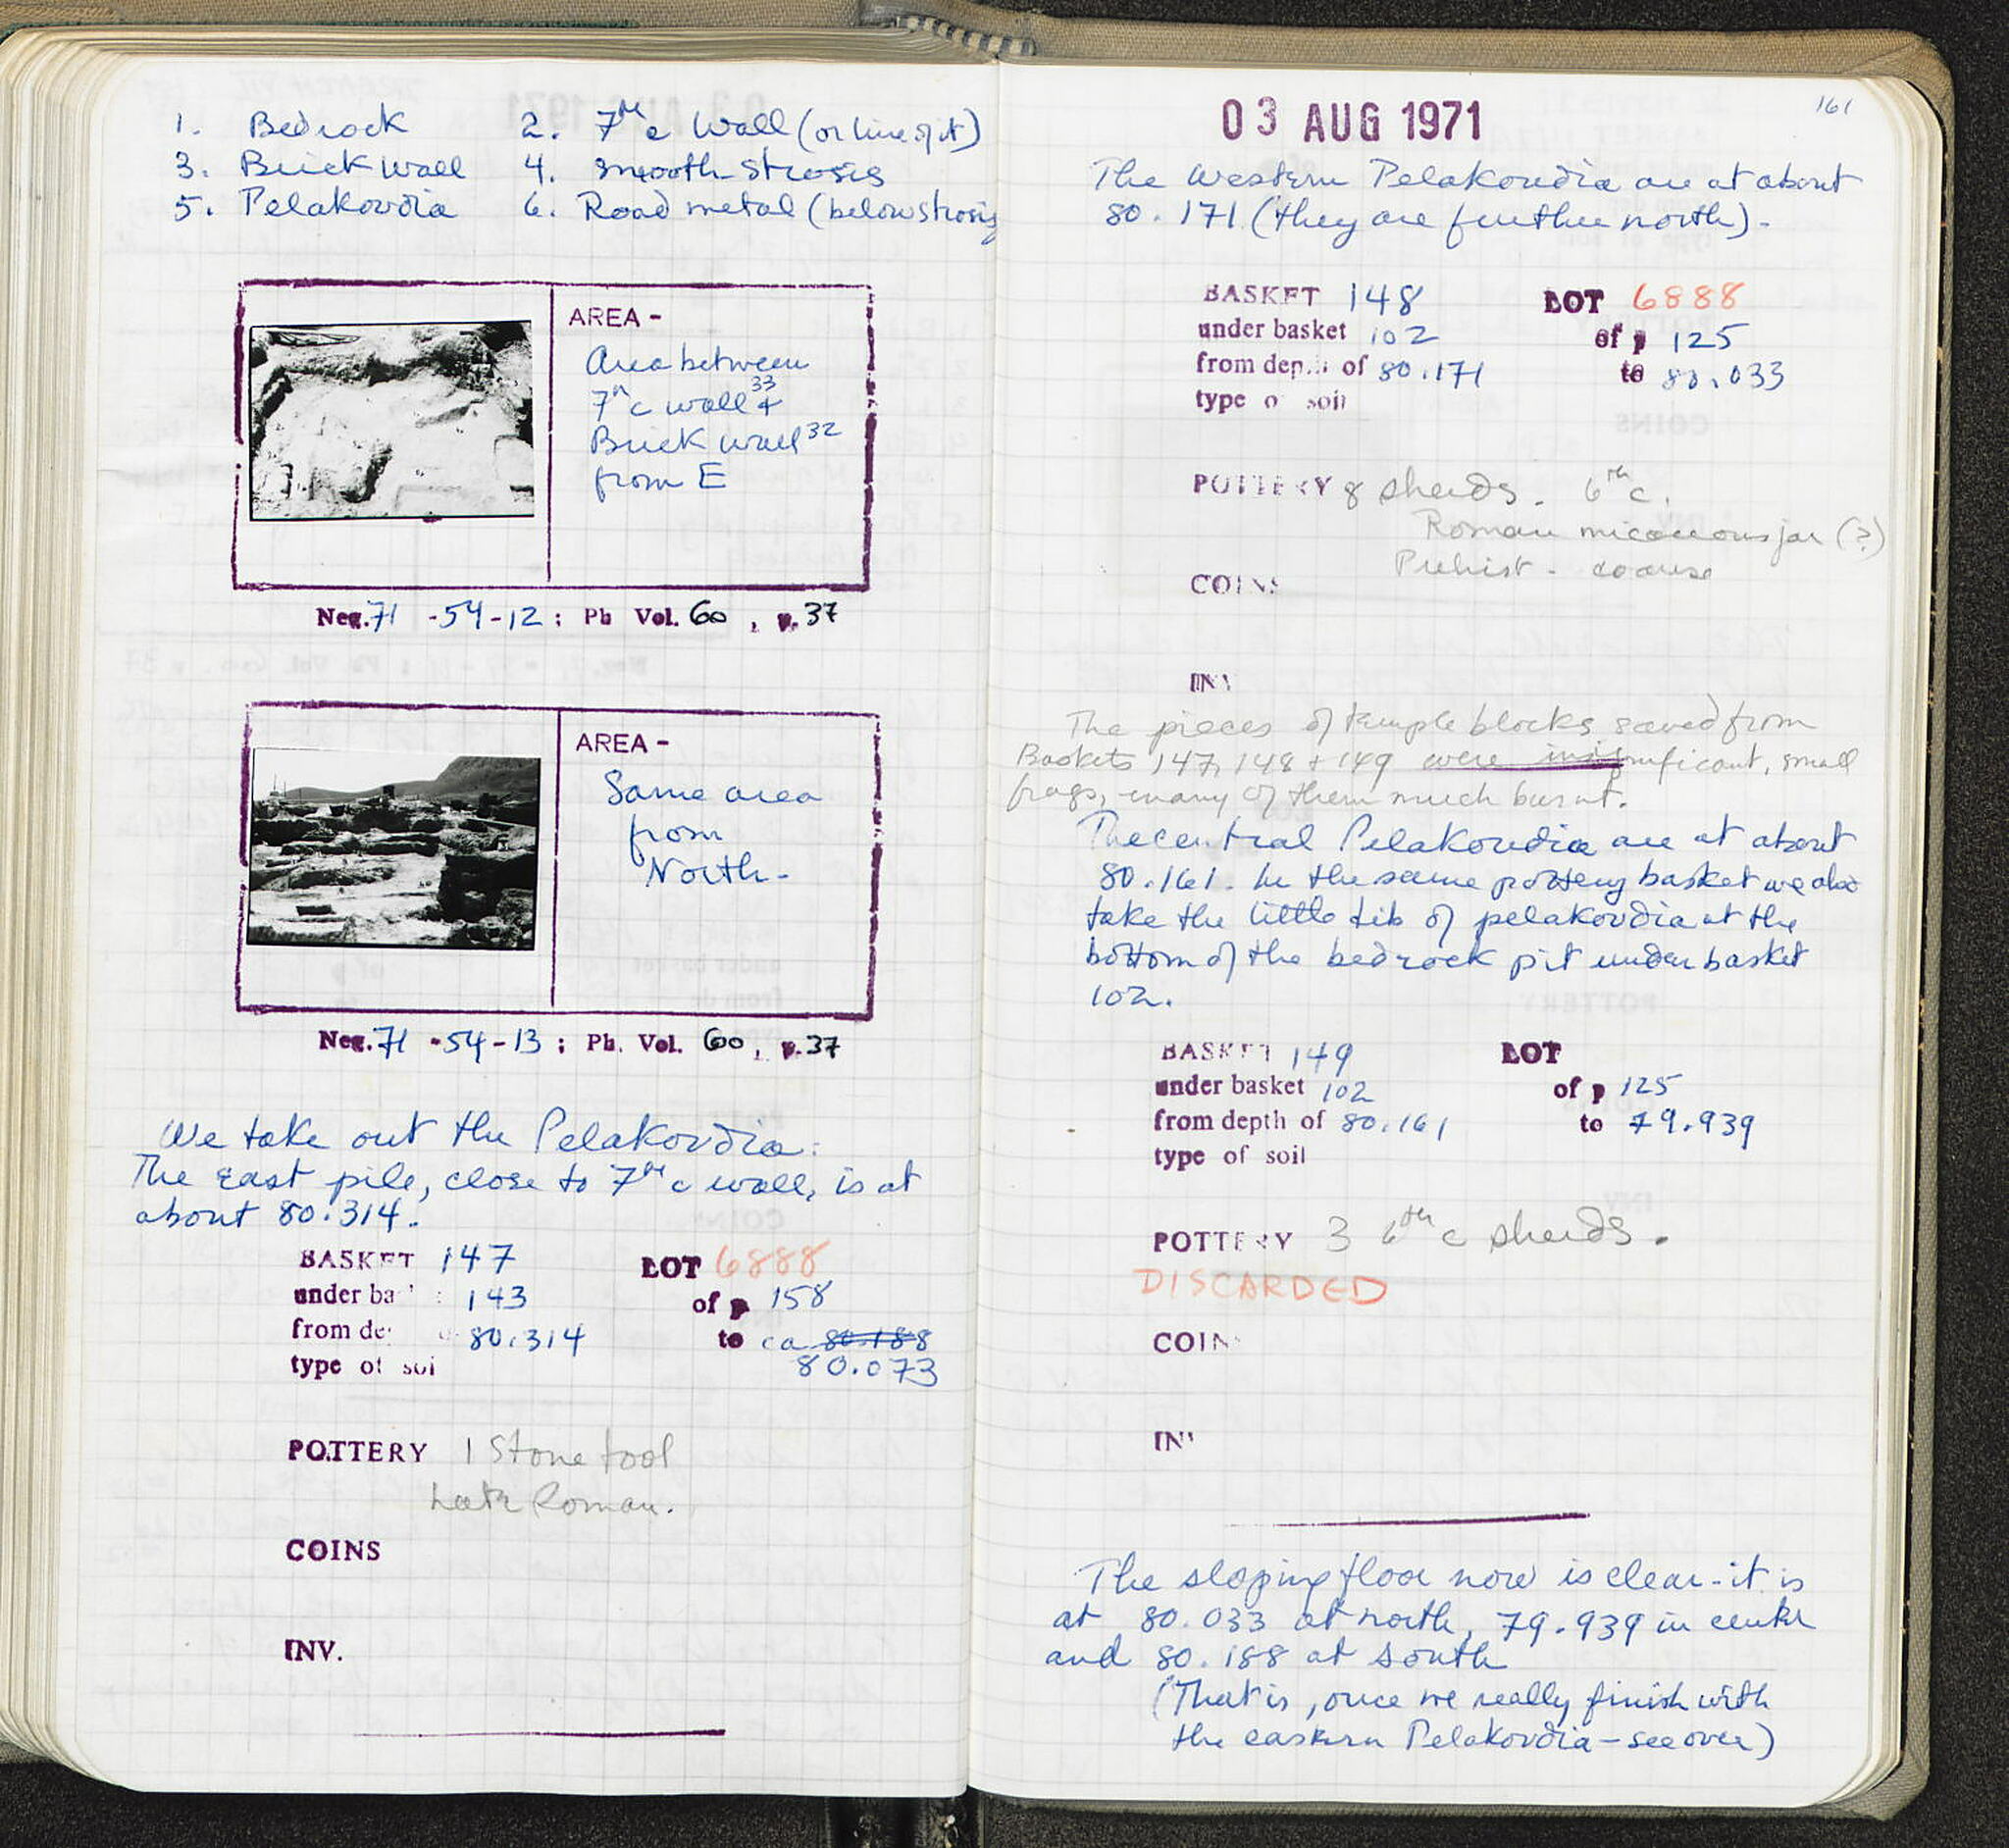 1. Bedrock 2. 7th c Wall (or line of it)
3. Brick wall 4. smooth strosis
5. Pelakovdia 6. Road metal (below strosis
AREA -
Area between
7th c wall 33 +
Brick wall 32
from E
Neg. 71 - 54 - 12 ; Ph Vol. 60 , p. 37
AREA -
Same area
from
North -
Neg. 71 - 54 - 13 ; Ph. Vol. 60 , p. 37
We take out the Pelakovdia:
The east pile, close to 7th c wall, is at
about 80.314.
BASKET 147 LOT 6888
under ba 143 of p 158
from de 80.314 to ca 80.188
80.073
type of soi
POTTERY 1 Stone tool
Late Roman.
COINS
INV.
03 AUG 1971
161
The western Pelakovdia are at about
80.171 (they are further north).
BASKET 148 LOT 6888
under basket 102 of p 125
from dep of 80.171 to 80.033
type o soil
POTTERY 8 sherds. 6th c.
Roman micaceous jar (?)
Prehist - coarse
COINS
INV
The pieces of temple blocks saved from
Baskets 147, 148 + 149 were insignificant, small
frags, many of them much burnt.
The central Pelakovdia are at about
80.161. In the same pottery basket we also
take the little bib of pelakovdia at the
bottom of the bedrock pit under basket
102.
BASKET 149 LOT
under basket 102 of p 125
from depth of 80.161 to 79.939
type of soil
POTTERY 3 6th c sherds.
DISCARDED
COIN
IN
The sloping floor now is clear - it is
at 80.033 at north, 79.939 in center
and 80.188 at south
(That is, once we really finish with
the eastern Pelakovdia - see over)